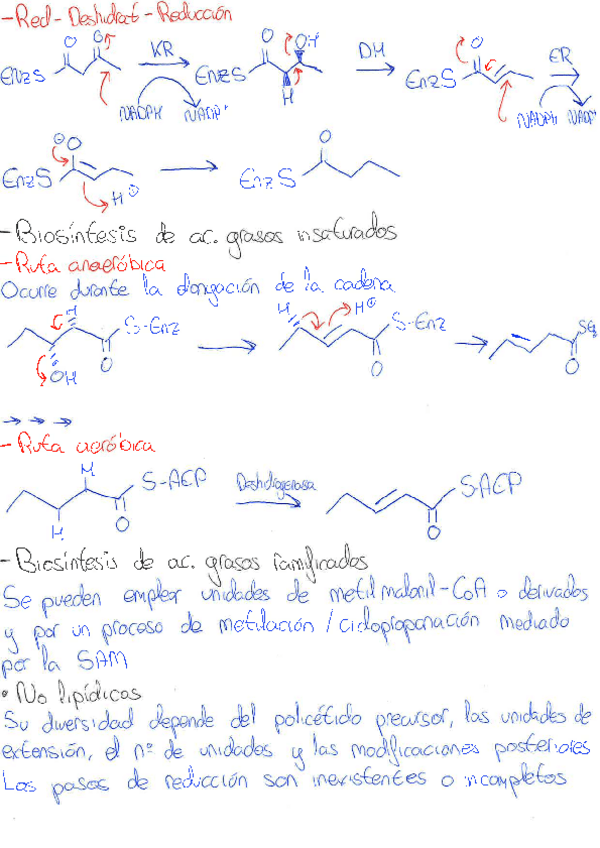 -Red-Deshidrat-Reducción
O O OH O O
KR DH ER
EnzS EnzS EnzS
H
NADPH NADP⁺ NADPH NADP⁺
⊖O O
EnzS EnzS
H⊕
-Biosíntesis de ac. grasos insaturados
-Ruta anaeróbica
Ocurre durante la elongación de la cadena
H S-Enz H H⊕ S-Enz
OH O O O
-Ruta aeróbica
H S-ACP Deshidrogenasa SACP
H O O
-Biosíntesis de ac. grasos ramificados
Se pueden emplear unidades de metilmalonil-CoA o derivados
y por un proceso de metilación / ciclopropanación mediado
por la SAM
• No lipídicos
Su diversidad depende del policétido precursor, las unidades de
extensión, el nº de unidades y las modificaciones posteriores
Los pasos de reducción son inexistentes o incompletos